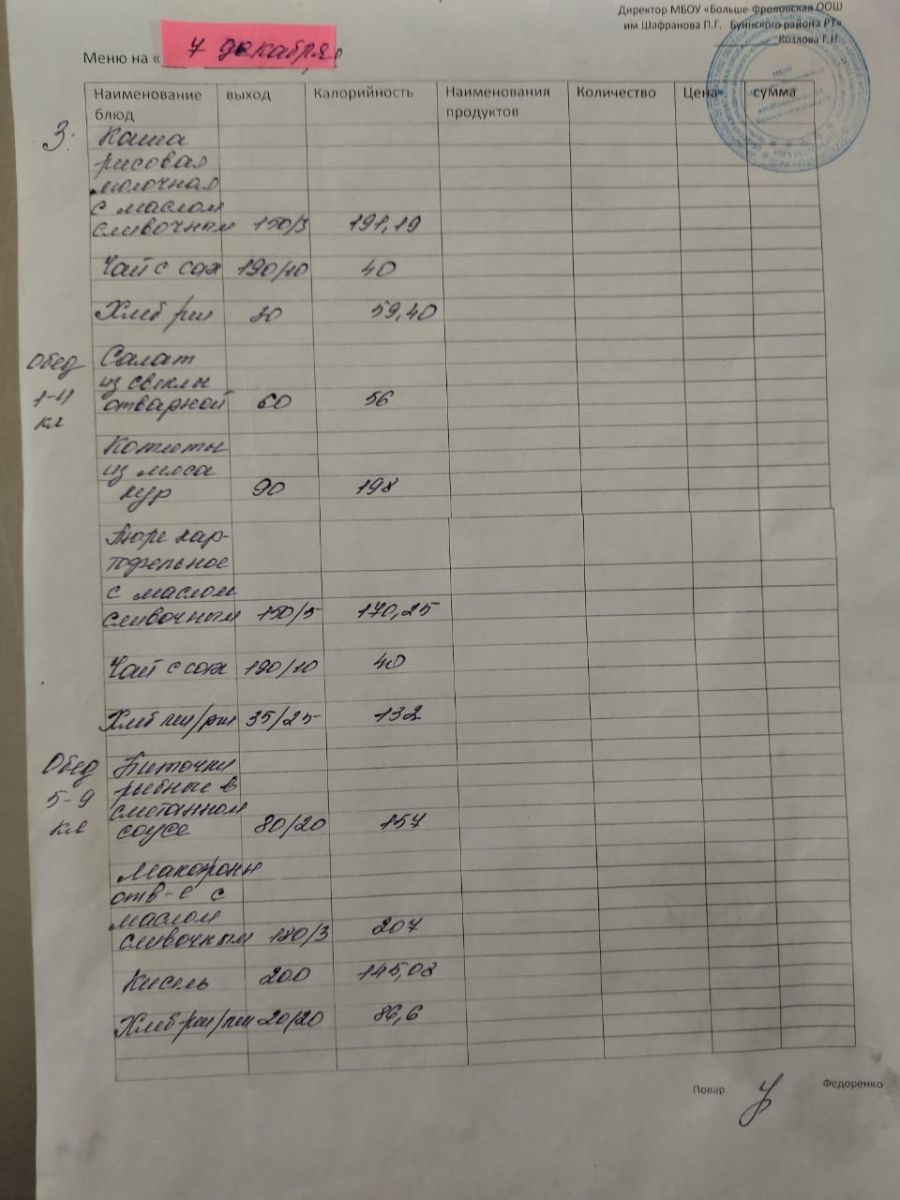 Директор МБОУ «Больше-Фроловская ООШ
им Шафранова П.Г. Буинского района РТ»
Козлова Г.Н.
Меню на « 7 декабря
Наименование блюд выход Калорийность Наименования продуктов Количество Цена сумма
З. Каша
рисовая
молочная
с маслом
сливочным 150/3 191,19
Чай с сах 190/10 40
Хлеб рж 30 59,40
Обед Салат
1-4 из свеклы
кл отварной 60 56
Котлеты
из мяса
кур 90 198
Пюре кар-
тофельное
с маслом
сливочным 150/5 170,25
Чай с сах 190/10 40
Хлеб пш/рж 35/25 132
Обед Биточки
5-9 рыбные в
кл сметанном
соусе 80/20 157
Макароны
отв-е с
маслом
сливочным 180/3 207
Кисель 200 145,08
Хлеб рж/пш 20/20 86,6
Повар Федоренко